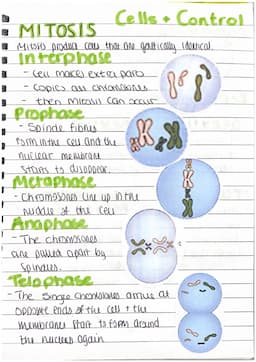 Cells + Control
MITOSIS
Mitosis product cells that are genetically identical.
Interphase
- Cell makes extra parts
- Copies all chromosomes
- then mitosis can occur
Prophase
- Spindle fibres
form in the cell and the
nuclear membrane
starts to disappear.
Metaphase
- Chromosomes line up in the
middle of the cell
Anaphase
- The chromosomes
are pulled apart by
spindles.
Telophase
- The single chromosomes arrive at
opposite ends of the cell + the
membranes start to form around
the nucleus again